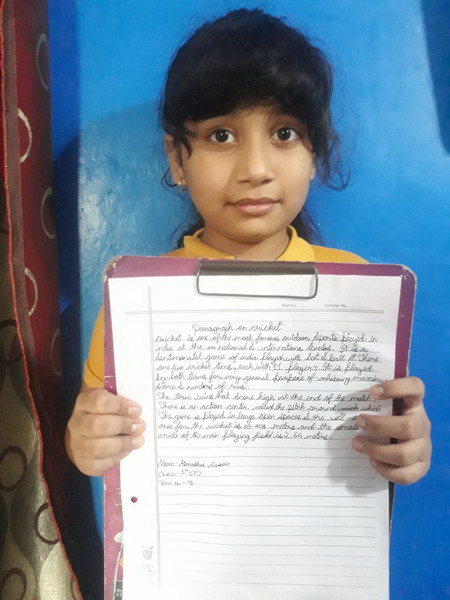 Page No.
Paragraph on cricket
Cricket is one of the most famous outdoor sports played in
india at the national & internationa levels. It is a
sentimental game of india played with bat & ball it. There
are two cricket tems, each with 11 players. It is played
by both teams for very general purpose of achieving maximum
score & numbers of runs.
The team wins that score high at the end of the match.
There is an action center called the pitch around which
The game is played in large open spaces & the
area for the wicket is meters and the
circle of the main playing field is 2.64 meters.
Name-
Class- 5th
Roll no - 16